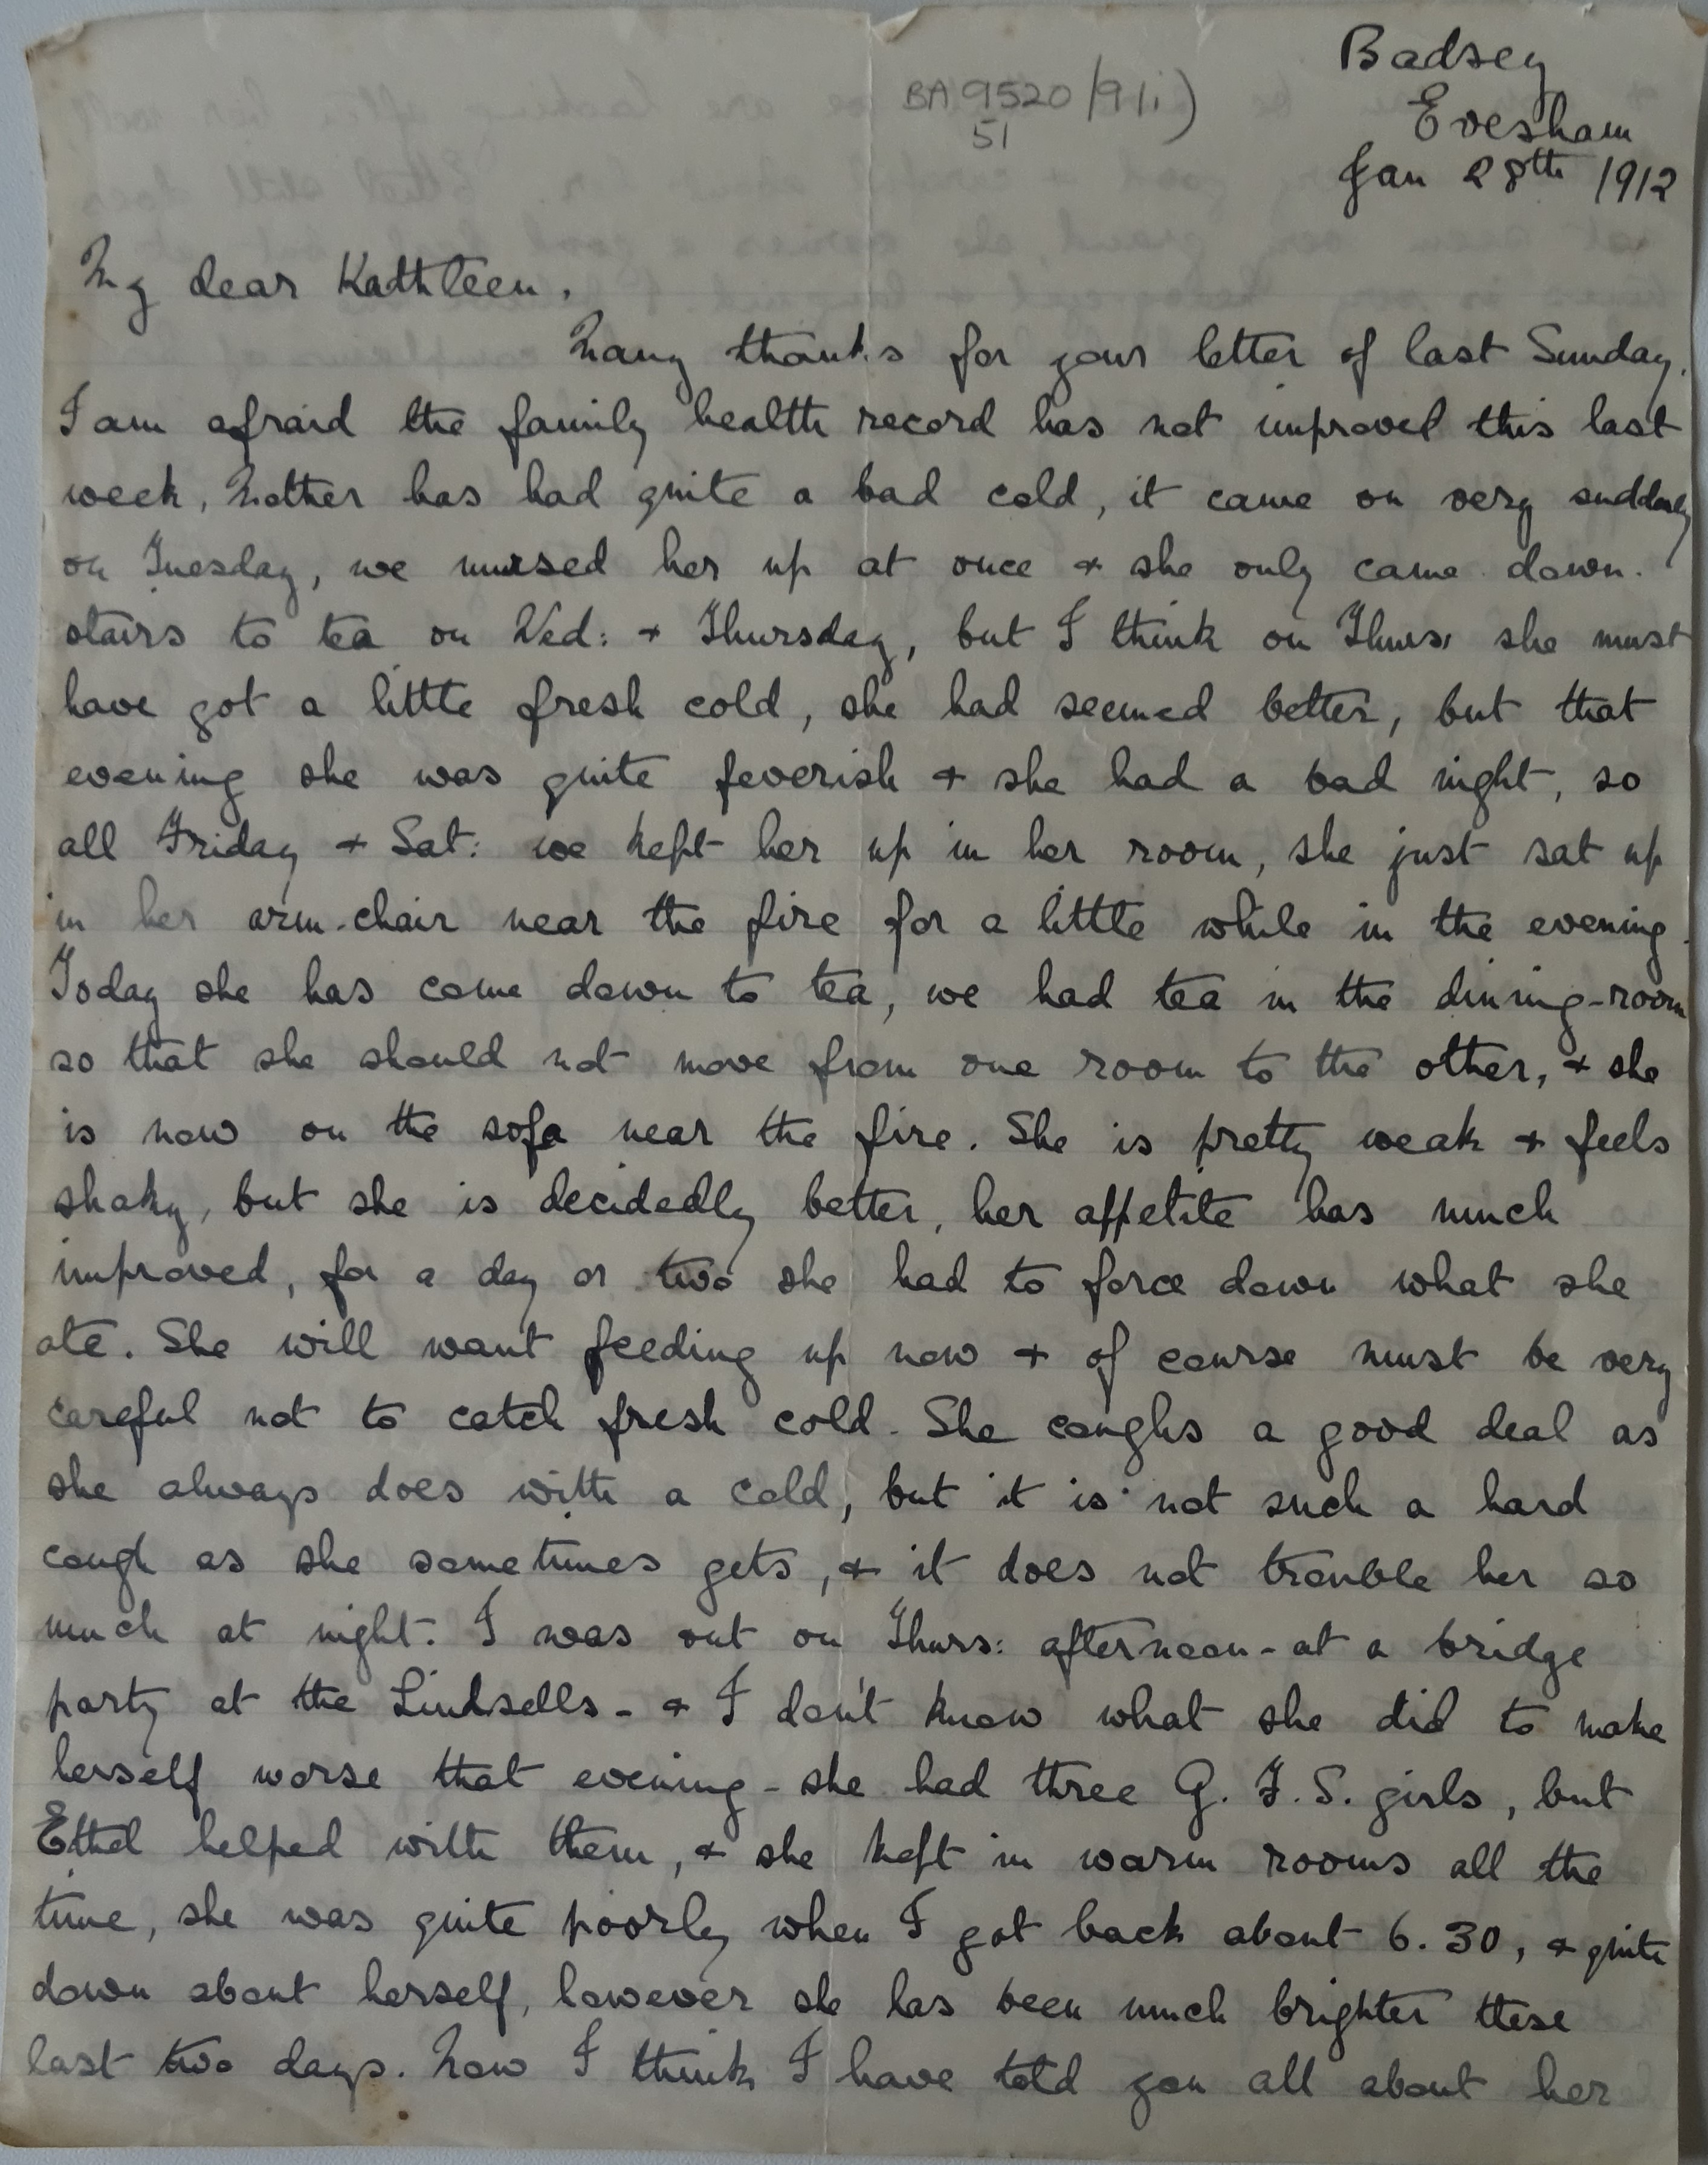 Badsey
BA 9520/9(i)
51
Evesham
Jan 28th 1912
My dear Kathleen.
Many thanks for your letter of last Sunday.
I am afraid the family health record has not improved this last
week, Mother has had quite a bad cold, it came on very suddenly
on Tuesday, we nursed her up at once & she only came down-
stairs to tea on Wed: & Thursday, but I think on Thurs: she must
have got a little fresh cold, she had seemed better, but that
evening she was quite feverish & she had a bad night, so
all Friday & Sat: we kept her up in her room, she just sat up
in her arm-chair near the fire for a little while in the evening.
Today she has come down to tea, we had tea in the dining-room
so that she should not move from one room to the other, & she
is now on the sofa near the fire. She is pretty weak & feels
shaky, but she is decidedly better, her appetite has much
improved, for a day or two she had to force down what she
ate. She will want feeding up now & of course must be very
careful not to catch fresh cold. She coughs a good deal as
she always does with a cold, but it is not such a hard
cough as she sometimes gets, & it does not trouble her so
much at night. I was out on Thurs: afternoon - at a bridge
party at the Lindsells - & I don't know what she did to make
herself worse that evening - she had three G. F. S. girls, but
Ethel helped with them, & she kept in warm rooms all the
time, she was quite poorly when I got back about 6.30, & quite
down about herself, however she has been much brighter these
last two days. Now I think I have told you all about her